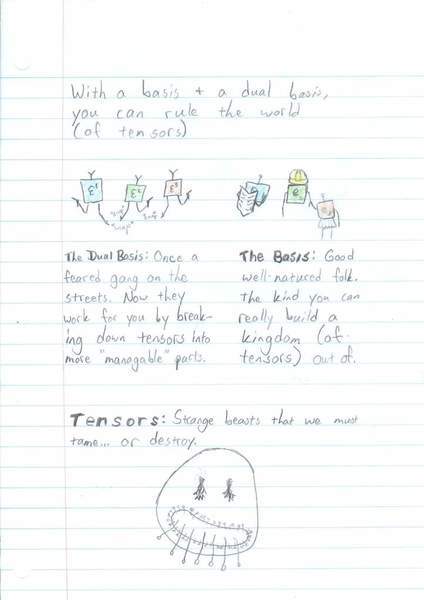 With a basis + a dual basis,
you can rule the world
(of tensors)
ε¹ ε² ε³
"snap" "snap"
"snap"
The Dual Basis: Once a
feared gang on the
streets. Now they
work for you by break-
ing down tensors into
more "managable" parts.
The Basis: Good
well-natured folk.
The kind you can
really build a
kingdom (of
tensors) out of.
Tensors: Strange beasts that we must
tame... or destroy.